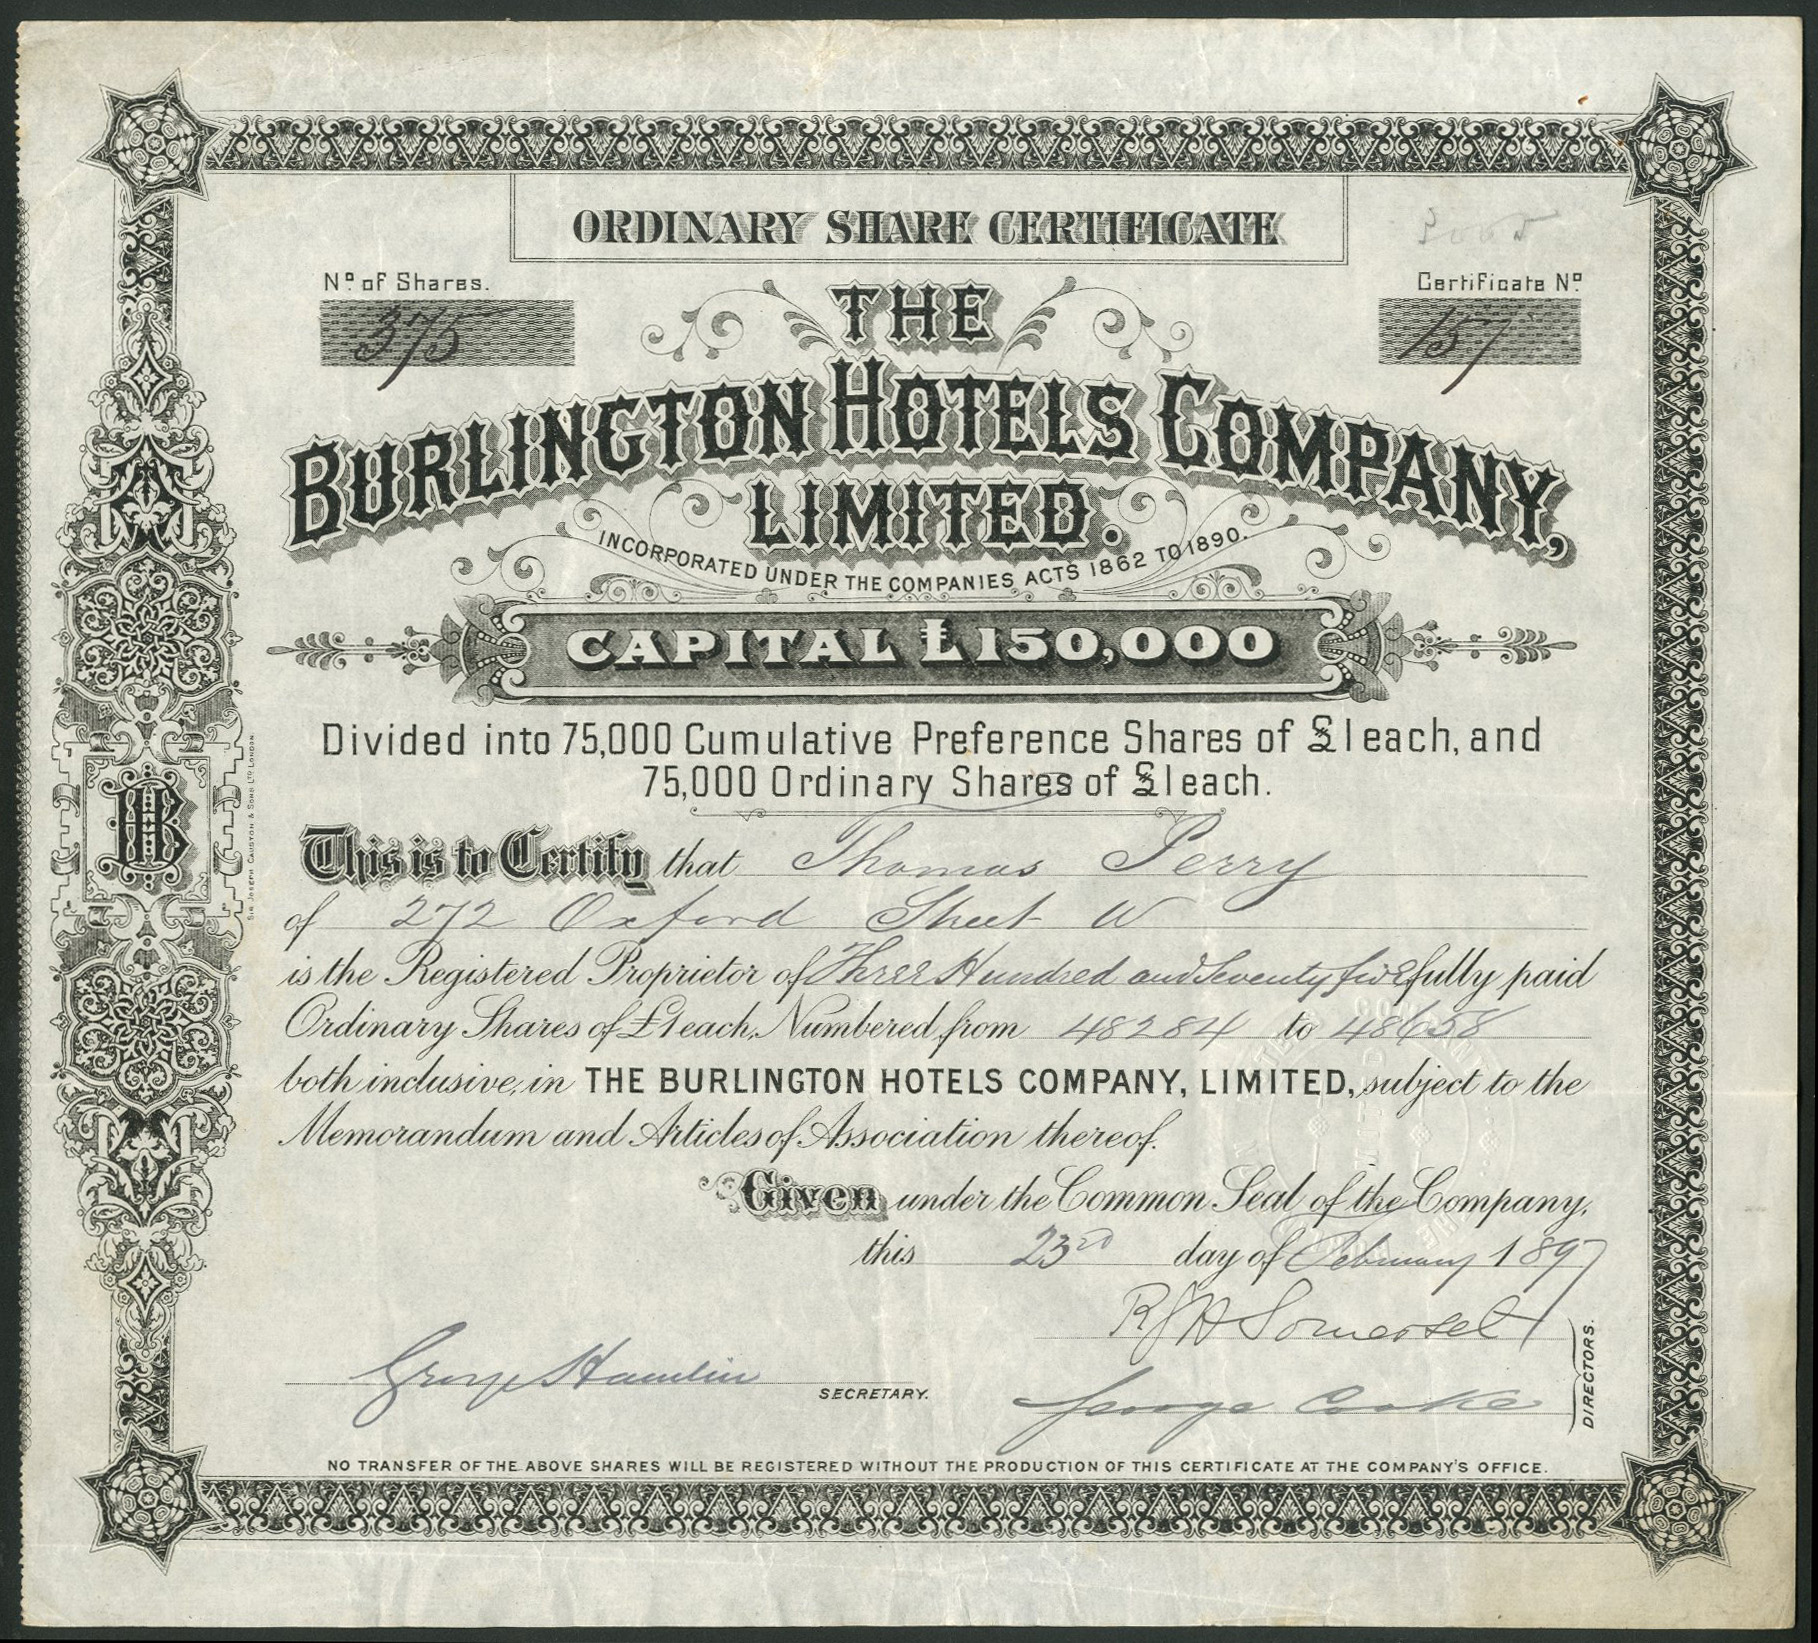 ORDINARY SHARE CERTIFICATE
Nº of Shares.
375
Certificate Nº
157
THE
BURLINGTON HOTELS COMPANY,
LIMITED.
INCORPORATED UNDER THE COMPANIES ACTS 1862 TO 1890.
CAPITAL £150,000
Divided into 75,000 Cumulative Preference Shares of £1 each, and
75,000 Ordinary Shares of £1 each.
This is to Certify that Thomas Perry
of 272 Oxford Street W
is the Registered Proprietor of Three Hundred and Seventy five fully paid
Ordinary Shares of £1 each, Numbered from 48284 to 48658
both inclusive, in THE BURLINGTON HOTELS COMPANY, LIMITED, subject to the
Memorandum and Articles of Association thereof.
Given under the Common Seal of the Company,
this 23rd day of February 1897
R J H Somerset
George Hamlin
SECRETARY.
George Cooke
DIRECTORS.
NO TRANSFER OF THE ABOVE SHARES WILL BE REGISTERED WITHOUT THE PRODUCTION OF THIS CERTIFICATE AT THE COMPANY'S OFFICE.
SIR JOSEPH CAUSTON & SONS LTD LONDON.